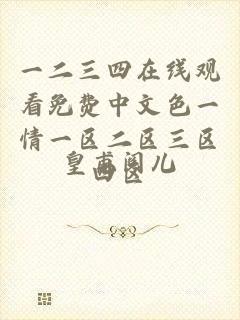 一二三四在线观
看免费中文色一
情一区二区三区
四区
皇甫阁儿